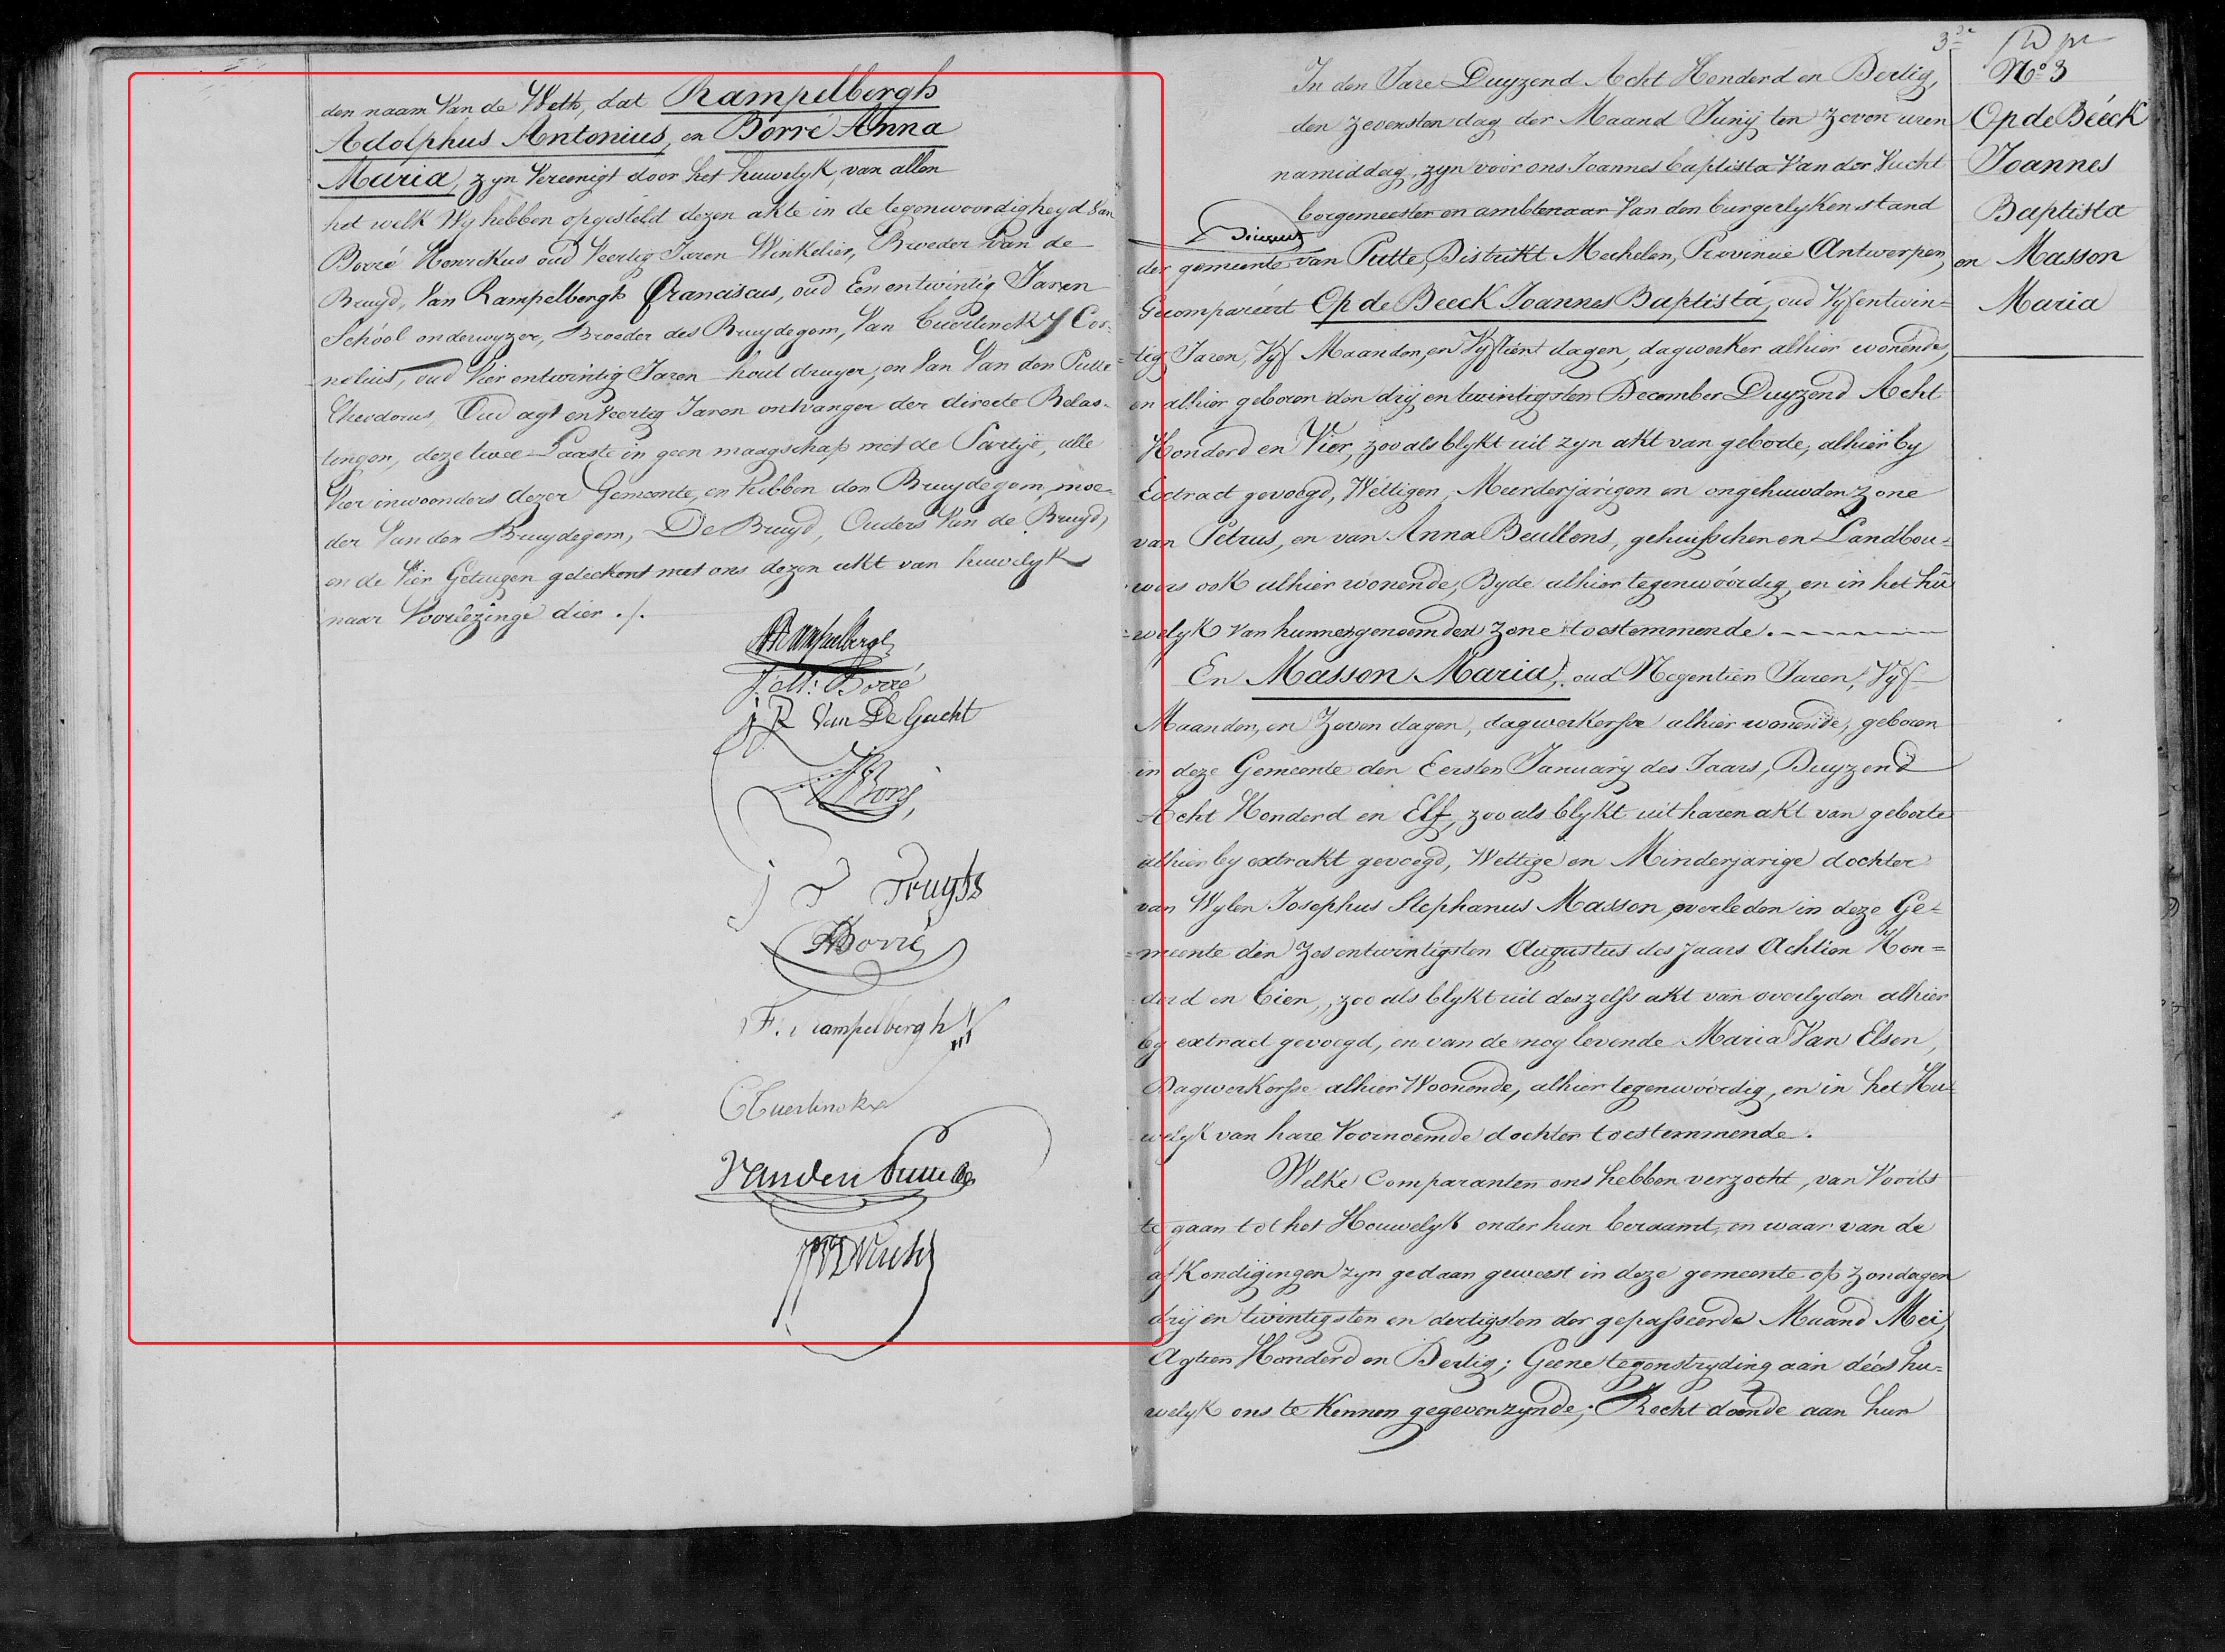 den naam Van de Weth, dat Rampelbergh
Adolphus Antonius, en Borré Anna
Maria, zyn Vereenigt door het huwelyk, van allen
het welk Wy hebben opgesteld dezen akte in de tegenwoordigheyd Van
Borré Henrikus oud Veertig Jaren Winkelier, Broeder Van de
Bruyd, Van Rampelbergh Franciscus, oud Een en twintig Jaren
School onderwyzer, Broeder des Bruydegom, Van Cuerlinckx Cor-
nelius, oud Vier en twintig Jaren hout drayer, en Van Van den Putte
Theodorus, Oud agt en Veertig Jaren ontvanger der directe Belas-
tingen, deze twee Laaste in geen maagschap met de Partye, alle
Vier inwoonders dezer Gemeente, en hebben den Bruydegom, moe-
der Van den Bruydegom, De Bruyd, Ouders Van de Bruyd,
en de Vier Getuigen geteekent met ons dezen akt van huwelyk
naar Voorlezinge dier ./.
Rampelbergh
Borré
Van De Gucht
J D Truyts
Borré
F. Rampelbergh
CCuerlinckx
Vanden
3de
In den Jare Duyzend Acht Honderd en Dertig,
den Zevensten dag der Maand Juny ten Zeven uren
namiddag, zyn voor ons Joannes baptista Van der Vucht
borgemeester en ambtenaar Van den burgerlyken stand
der gemeente van Putte, Distrikt Mechelen, Provincie Antwerpen,
Gecompareert Op de Beeck Joannes Baptista, oud Vyf en twin-
tig Jaren, Vyf Maanden, en Vyftien dagen, dagwerker alhier wonende,
en alhier geboren den dry en twintigsten December Duyzend Acht
Honderd en Vier, zoo als blykt uit zyn akt van geborte, alhier by
Extract gevoegd, Wettigen, Meerderjarigen en ongehuwden zone
van Petrus, en van Anna Beullens, gehuisschen en Landbou-
wers ook alhier wonende, Byde alhier tegenwoordig, en in het hu
welyk van hunnen genoemden zone toestemmende.
En Masson Maria, oud Negentien Jaren, Vyf
Maanden, en Zeven dagen, dagwerkersse alhier wonende, geboren
in deze Gemeente den Eersten January des Jaars, Duyzend
Acht Honderd en Elf, zoo als blykt uit haren akt van geborte
alhier by extrakt gevoegd, Wettige en Minderjarige dochter
van Wylen Josephus Stephanus Masson, overleden in deze Ge-
meente den Zes entwintigsten Augustus des Jaars Achtien Hon=
derd en tien, zoo als blykt uit deszelfs akt van overlyden alhier
by extract gevoegd, en van de nog levende Maria Van Elsen,
Dagwerkersse alhier Woonende, alhier tegenwoordig, en in het Hu-
welyk van hare Voornoemde dochter toestemmende.
Welke Comparanten ons hebben verzocht, van Voorts
te gaan tot het Houwelyk onder hun beraamt, en waar van de
afkondigingen zyn gedaan geweest in deze gemeente op Zondagen
dry en twintigsten en dertigsten der gepasseerde Maand Mei,
Agtien Honderd en Dertig; Geene tegenstryding aan dées hu-
welyk ons te kennen gegeven zynde; Recht doende aan hun
No 3
Op de Béeck
Joannes
Baptista
en Masson
Maria